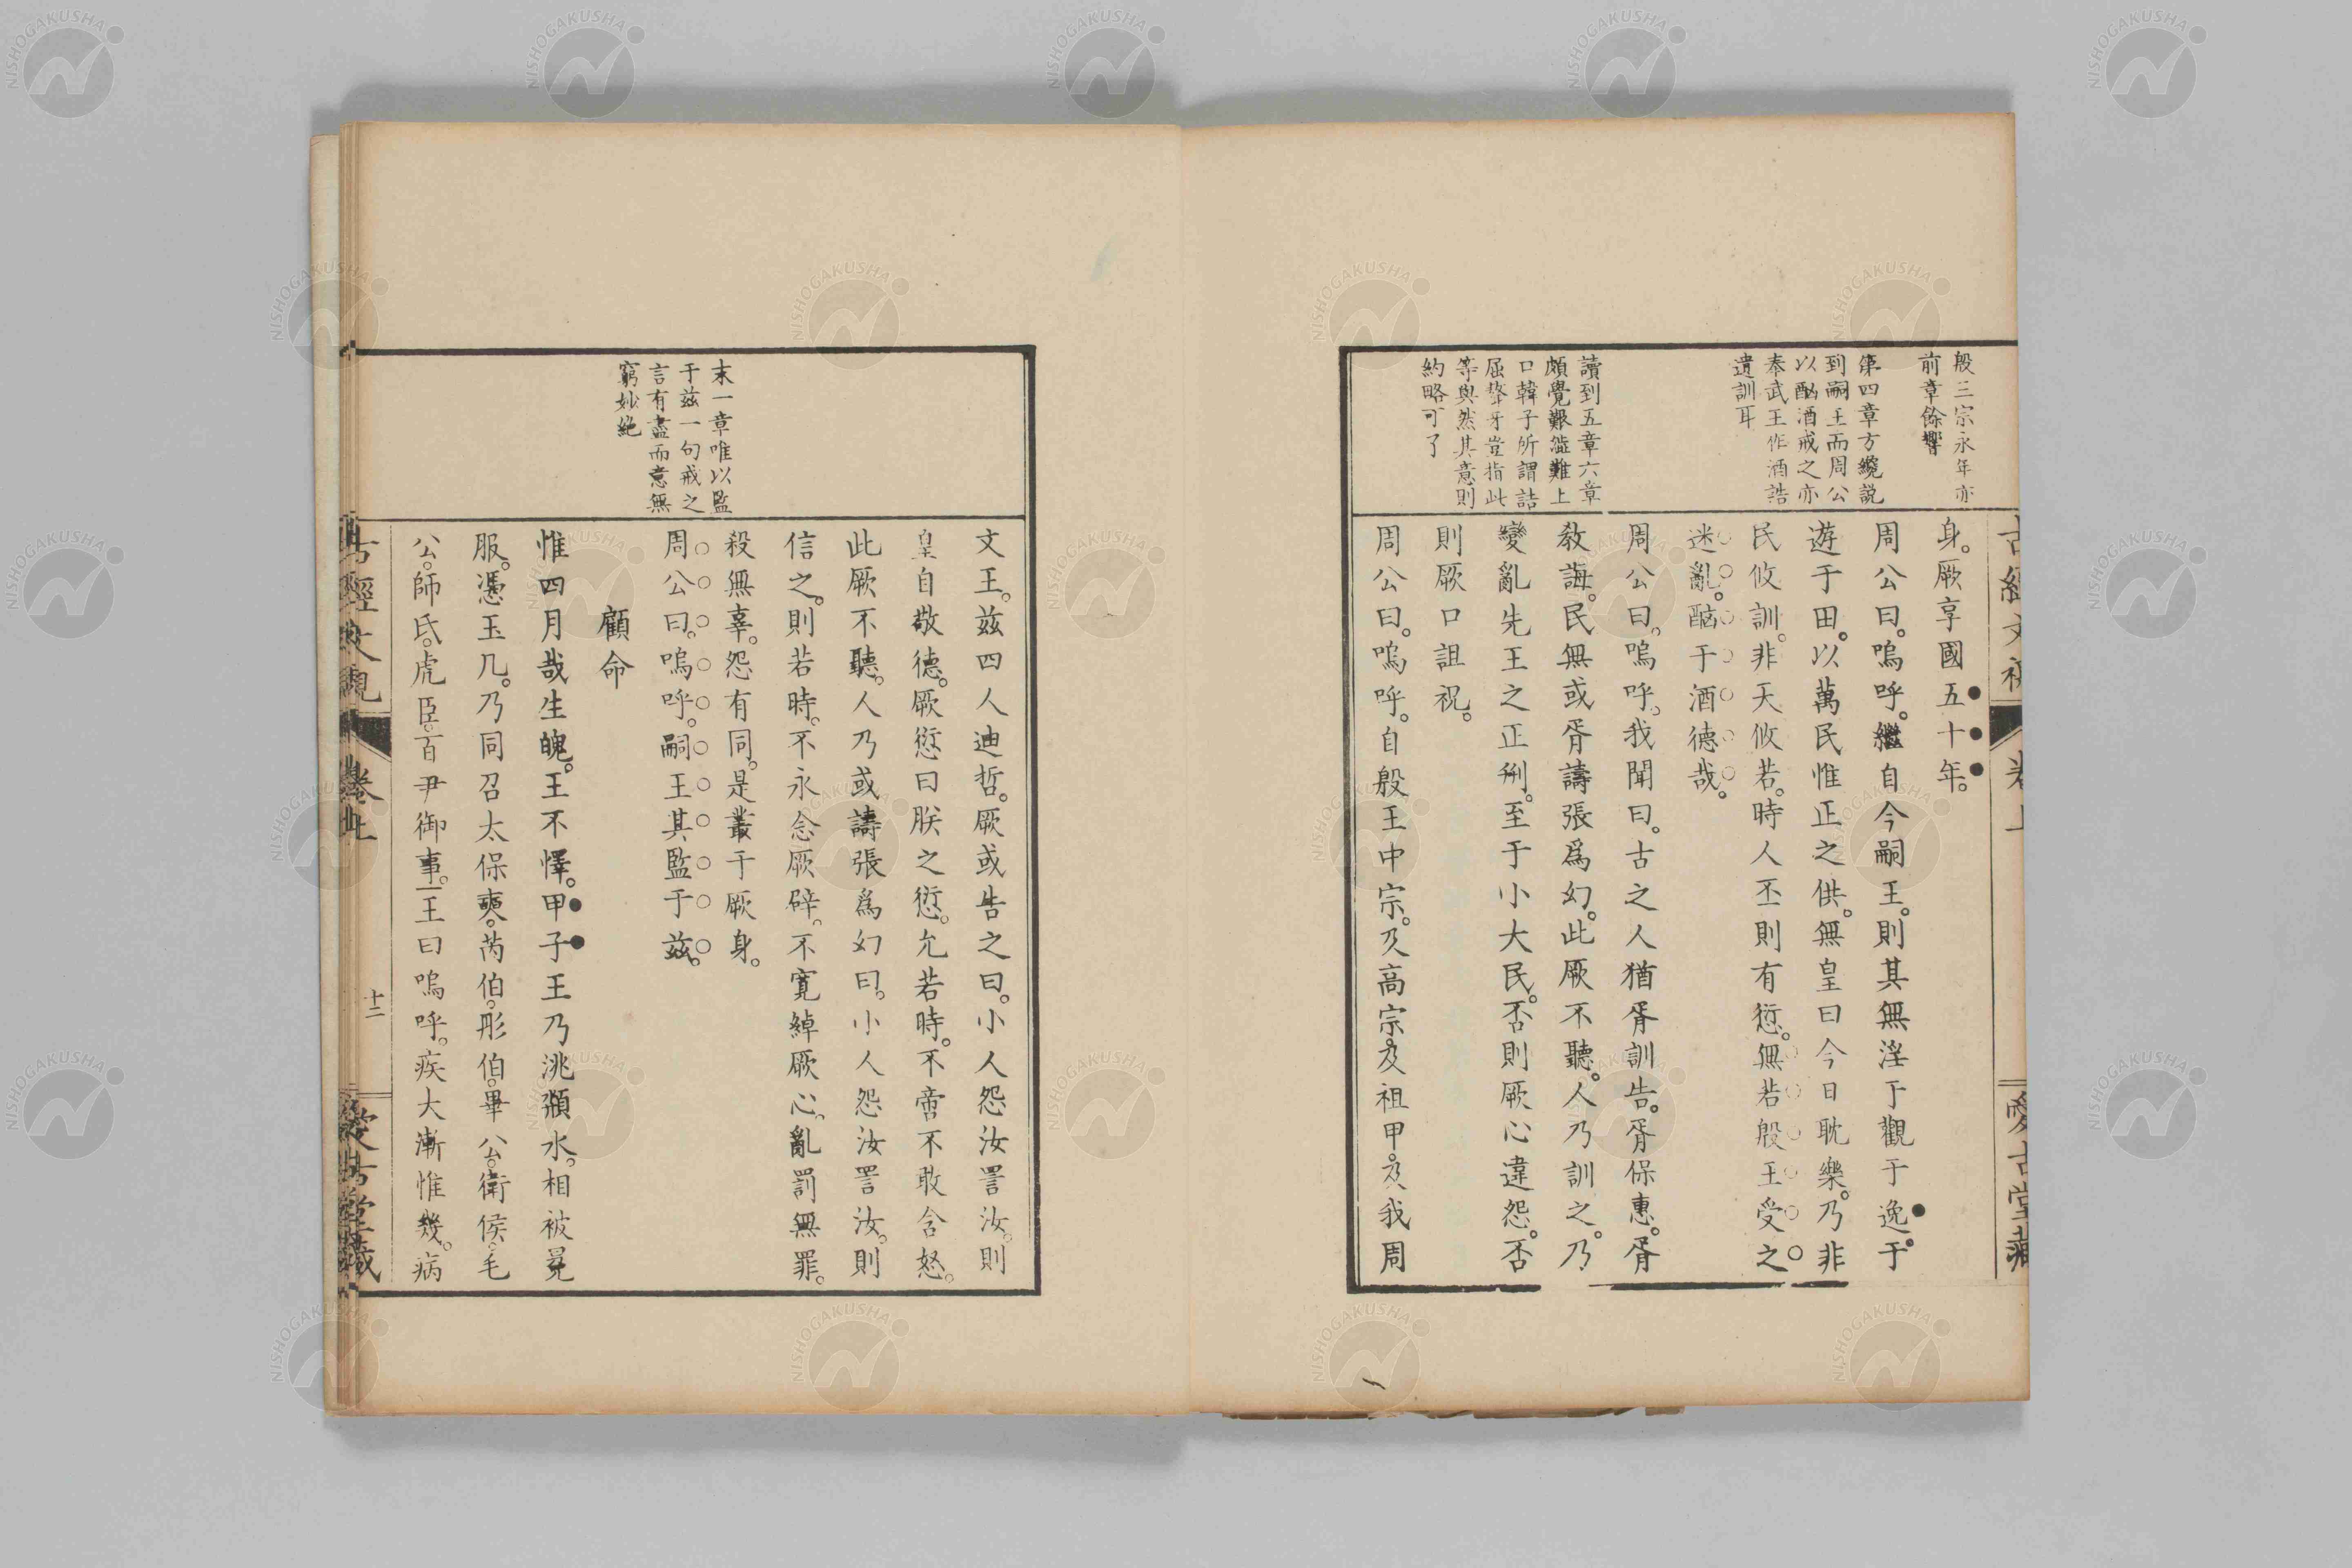 殷三宗永年亦
前章餘響
第四章方纔説
到嗣王而周公
以酗酒戒之亦
奉武王作酒誥
遺訓耳
讀到五章六章
頗覺艱澁難上
口韓子所謂詰
屈聱牙豈指此
等與然其意則
約略可了
身。厥享國五十年。
周公曰。嗚呼。繼自今嗣王。則其無淫于觀于逸。于
遊于田。以萬民惟正之供。無皇曰今日耽樂。乃非
民攸訓。非天攸若。時人丕則有愆。無若殷王受之
迷亂。酗于酒德哉。
周公曰。嗚呼。我聞曰。古之人猶胥訓告。胥保惠。胥
教誨。民無或胥譸張爲幻。此厥不聽。人乃訓之。乃
變亂先王之正刑。至于小大民。否則厥心違怨。否
則厥口詛祝。
周公曰。嗚呼。自殷王中宗。及高宗。及祖甲。及我周
末一章唯以監
于茲一句戒之
言有盡而意無
窮妙絶
文王。茲四人迪哲。厥或告之曰。小人怨汝詈汝。則
皇自敬德。厥愆曰朕之愆。允若時。不啻不敢含怒。
此厥不聽。人乃或譸張爲幻曰。小人怨汝詈汝。則
信之。則若時。不永念厥辟。不寬綽厥心。亂罰無罪。
殺無辜。怨有同。是叢于厥身。
周公曰。嗚呼。嗣王其監于茲。
顧命
惟四月哉生魄。王不懌。甲子王乃洮頮水。相被冕
服。憑玉几。乃同召太保奭。芮伯。彤伯。畢公。衛侯。毛
公。師氏。虎臣。百尹御事。王曰嗚呼。疾大漸惟幾。病
卷上
十二
愛古堂藏